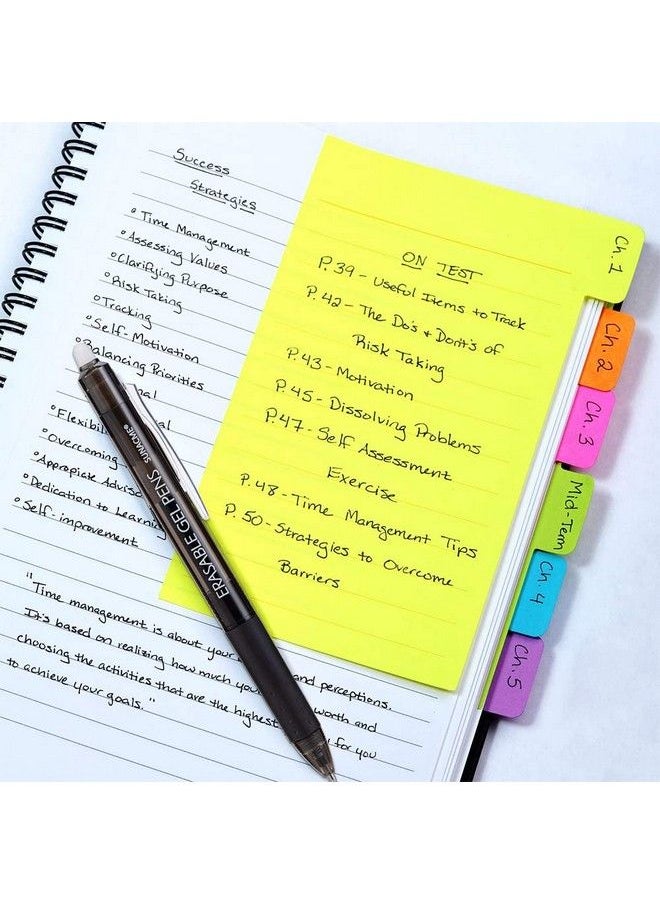 Success
Strategies
° Time Management
° Assessing Values
° Clarifying Purpose
° Risk Taking
° Tracking
° Self-Motivation
° Balancing Priorities
° Overcoming
° Appropiate
° Dedication to Learning
° Self-improvement
"Time management is about your and perceptions.
It's based on realizing how much you worth and
choosing the activities that are the highest for you
to achieve your goals."
ON TEST
P. 39 - Useful Items to Track
P. 42 - The Do's + Dont's of
Risk Taking
P. 43 - Motivation
P. 45 - Dissolving Problems
P. 47 - Self Assessment
Exercise
P. 48 - Time Management Tips
P. 50 - Strategies to Overcome
Barriers
Ch. 1
Ch. 2
Ch. 3
Mid-Term
Ch. 4
Ch. 5
ERASABLE GEL PENS SUNACME®